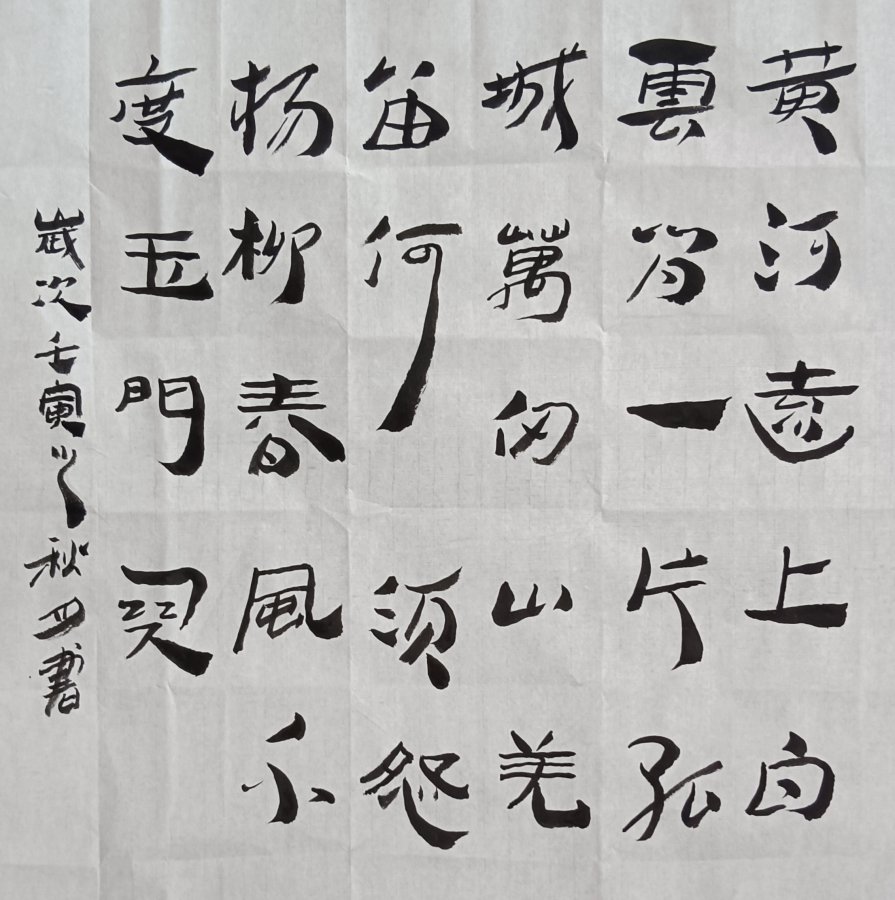 黄河遠上白
雲間一片孤
城萬仞山羌
笛何須怨
杨柳春風不
度玉門關
歲次壬寅之秋月書